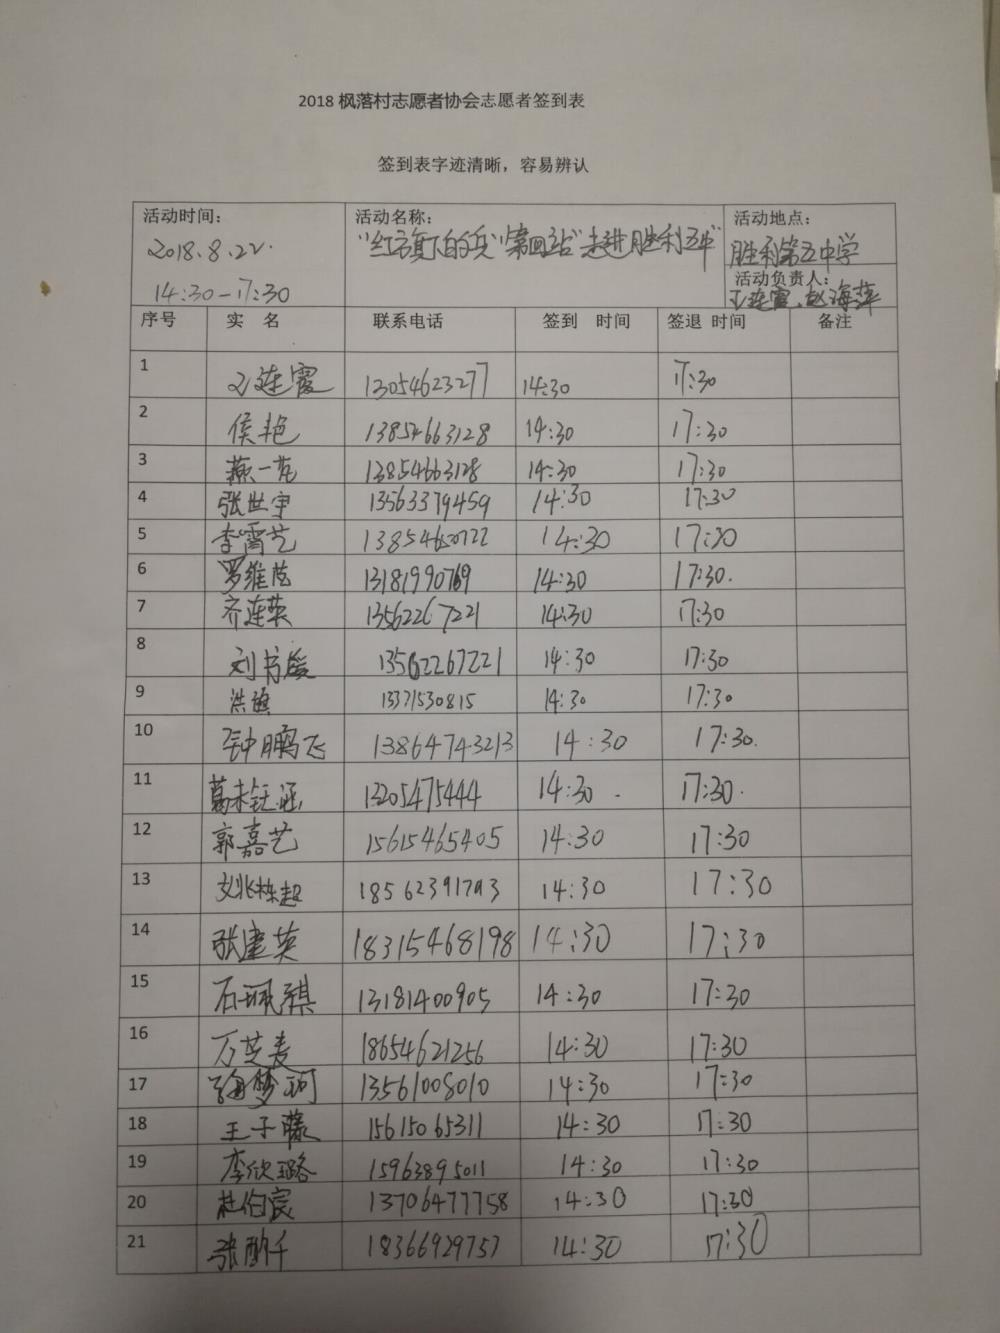 2018 枫落村志愿者协会志愿者签到表
签到表字迹清晰，容易辨认
活动时间： 活动名称： 活动地点：
2018.8.22. "红旗下的兵"第四站"走进胜利五中" 胜利第五中学
14:30-17:30 活动负责人：
王连霞、赵海萍
序号 实 名 联系电话 签到 时间 签退 时间 备注
1 王连霞 13054623277 14:30 17:30
2 侯艳 13854663128 14:30 17:30
3 燕一苑 13854663128 14:30 17:30
4 张世宇 13563379459 14:30 17:30
5 李霄艺 13854630722 14:30 17:30
6 罗维 13181990769 14:30 17:30.
7 齐连英 13562267221 14:30 17:30
8 刘书媛 13562267221 14:30 17:30
9 洪旗 13371530815 14:30 17:30
10 钟鹏飞 13864743213 14:30 17:30.
11 葛未钰涵 13205475444 14:30. 17:30.
12 郭嘉艺 15615465405 14:30 17:30
13 刘栋超 18562391793 14:30 17:30
14 张建英 18315468198 14:30 17:30
15 石珮祺 13181400905 14:30 17:30
16 万芝麦 18654621256 14:30 17:30
17 梦珂 13561008010 14:30 17:30
18 王子藤 15615065311 14:30 17:30
19 李欣璐 15963895011 14:30 17:30
20 杜伯宸 13706477758 14:30 17:30
21 张千 18366929757 14:30 17:30